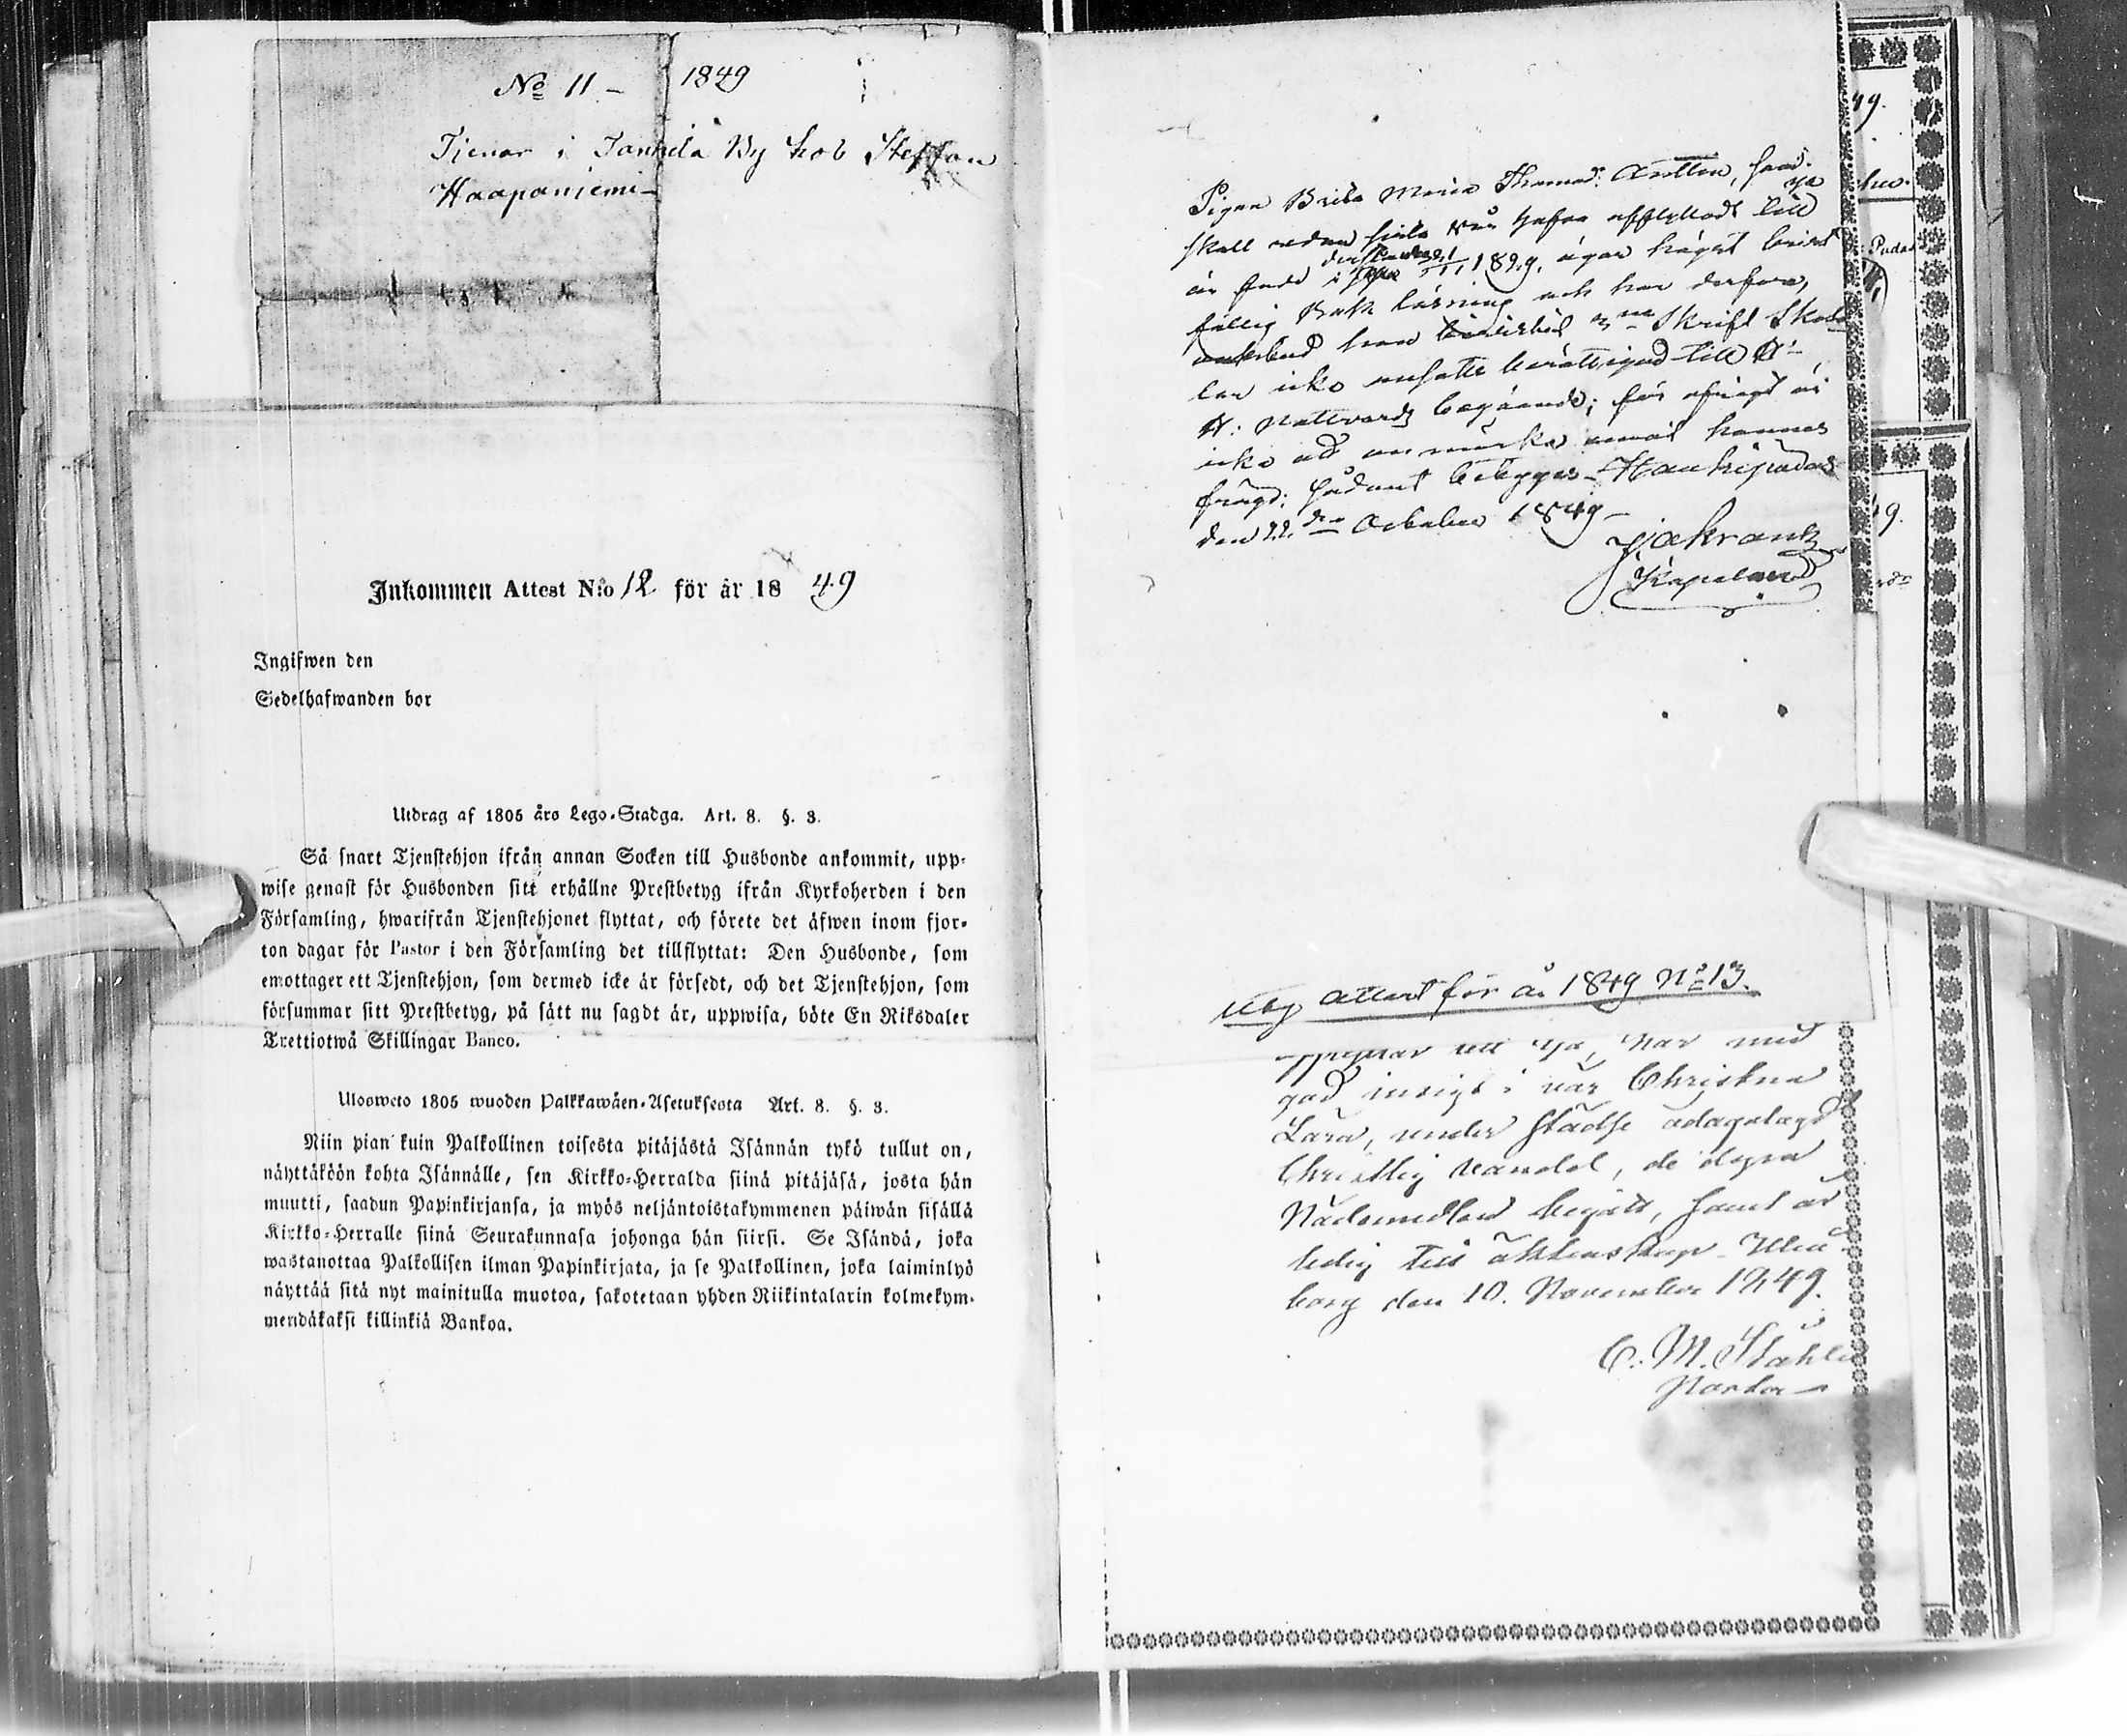 No 11 - 1849
Tjenar i Jankila By hos Steffan
Haapaniemi -
Inkommen Attest N:o 12 för år 1849
Ingifwen den
Sedelhafwanden bor
Utdrag af 1805 års Lego-Stadga. Art. 8. §. 3.
Så snart Tjenstehjon ifrån annan Socken till Husbonde ankommit, upp-
wise genast för Husbonden sitt erhållne Prestbetyg ifrån Kyrkoherden i den
Församling, hwarifrån Tjenstehjonet flyttat, och förete det äfwen inom fjor-
ton dagar för Pastor i den Församling det tillflyttat: Den Husbonde, som
emottager ett Tjenstehjon, som dermed icke är försedt, och det Tjenstehjon, som
försummar sitt Prestbetyg, på sätt nu sagdt är, uppwisa, böte En Riksdaler
Trettiotwå Skillingar Banco.
Ulosweto 1805 wuoden Palkkawäen-Asetuksesta Art. 8. §. 3.
Niin pian kuin Palkollinen toisesta pitäjästä Isännän tykö tullut on,
näyttäköön kohta Isännälle, sen Kirkko-Herralda siinä pitäjäsä, josta hän
muutti, saadun Papinkirjansa, ja myös neljäntoistakymmenen päiwän sisällä
Kirkko-Herralle siinä Seurakunnasa johonga hän siirsi. Se Isändä, joka
wastanottaa Palkollisen ilman Papinkirjata, ja se Palkollinen, joka laiminlyö
näyttää sitä nyt mainitulla muotoa, sakotetaan yhden Riikintalarin kolmekym-
mendäkaksi killinkiä Bankoa.
Pigan Brita Maria Thomasd: Antton,
skall redan sista vår hafva afflyttadt till Ijo
är född i 1829, äger högst
fällig Bok läsning och har derföre,
hon Skrift Skol
lar icke ansetts berättigad till
H: Nattvards begående; för öfrigt är
icke att anmärka emot hennes
frägd; sådant betygas - Haukipudas
den 22 October 1849 -
Kapelan
Utg attest för år 1849 No 13.
till Ijo, har med
god insigt i vår Christna
Lära, under städse ådagalagd
Christlig vandel, de dyra
Nådemedlen begått, samt är
ledig till äktenskap - Uleå-
borg den 10. November 1849.
C. M. Ståhle
Pastor
49.
Pudas
49.